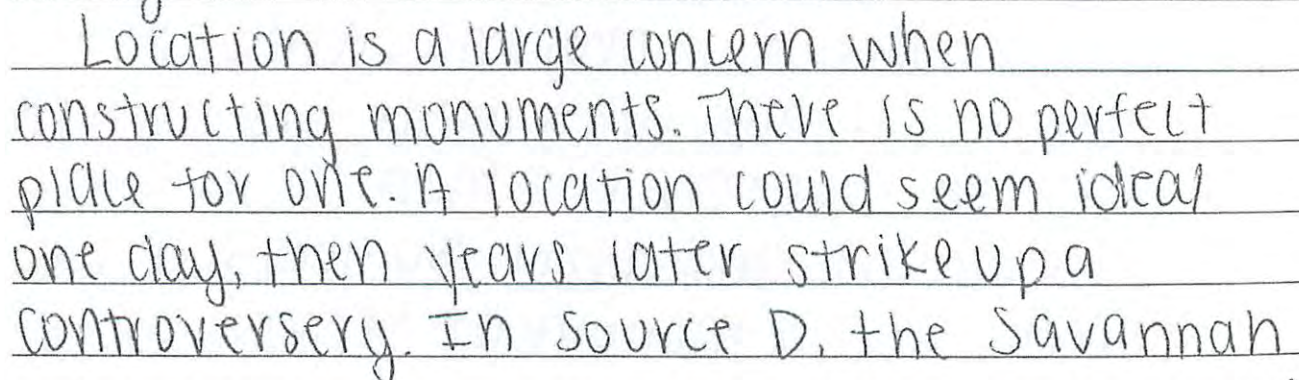 Location is a large concern when
constructing monuments. There is no perfect
place for one. A location could seem ideal
one day, then years later strike up a
controversery. In Source D, the Savannah